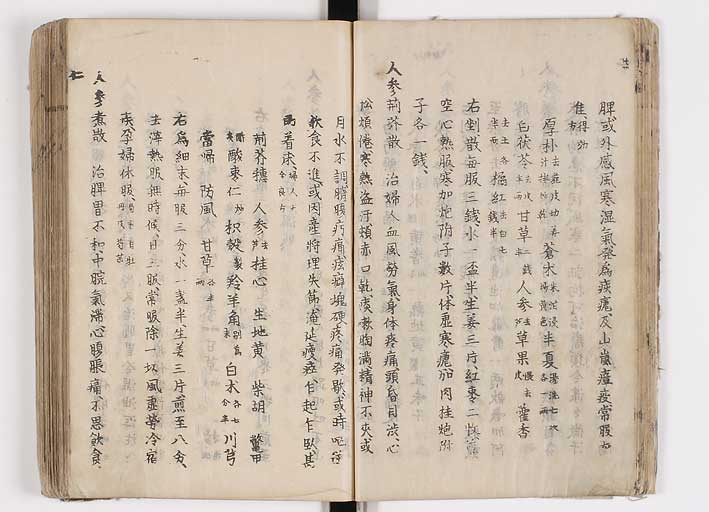 脾或外感風寒湿氣発為痎瘧及山嵐瘟疫常服如
得効
厚朴 蒼朮 半夏 湯洗七次各一兩
白茯苓 橘紅 甘草 人参 草果 藿香
右剉散毎服三錢水一盃半生姜三片紅棗二枚煎
空心熱服寒加炮附子数片体虚寒瘧加肉桂炮附
子各一錢
人参荊芥散 治婦人血風労氣身体疼痛頭昏目渋心
忪煩倦寒熱盗汗頬赤口乾痰嗽胸満精神不爽或
月水不調臍腹㽲痛痃癖塊硬疼痛発歇或時呕逆
飲食不進或因産将理失節淹延瘦瘁乍起乍臥甚
着床 婦人大全良方
荊芥穂 人参 桂心 生地黄 柴胡 鼈甲
酸棗仁 枳殻 羚羊角 白朮 川芎
當帰 防風 甘草
右為細末毎服三分水一盞半生姜三片煎至八分
去滓熱服無時候日三服常服除一切風虚労冷宿
疾孕婦休服
人参煮散 治脾胃不和中脘氣滞心腹脹痛不思飲食